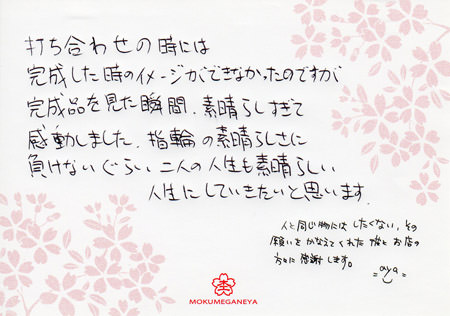 打ち合わせの時には
完成した時のイメージができなかったのですが
完成品を見た瞬間、素晴らしすぎて
感動しました。指輪の素晴らしさに
負けないぐらい二人の人生も素晴らしい
人生にしていきたいと思います。
人と同じ物にはしたくない、その
願いをかなえてくれた彼とお店の
方々に感謝します。
=aya=
MOKUMEGANEYA